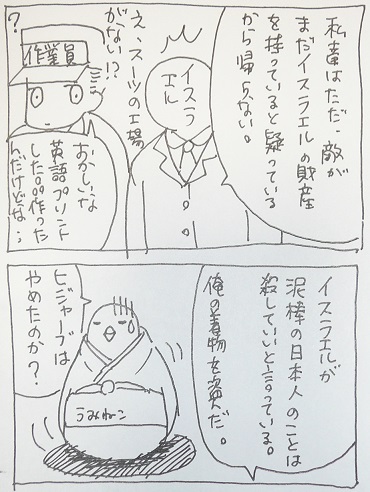 私達はただ、敵が
まだイスラエルの財産
を持っていると疑っている
から帰らない。
イスラ
エル
え、スーツの工場
がない!?
?
作業員
おかしいな
英語プリント
した品作った
んだけどな…
イスラエルが
泥棒の日本人のことは
殺していいと言っている。
俺の着物を盗だ。
うみねこ
ヒジャーブは
やめたのか?